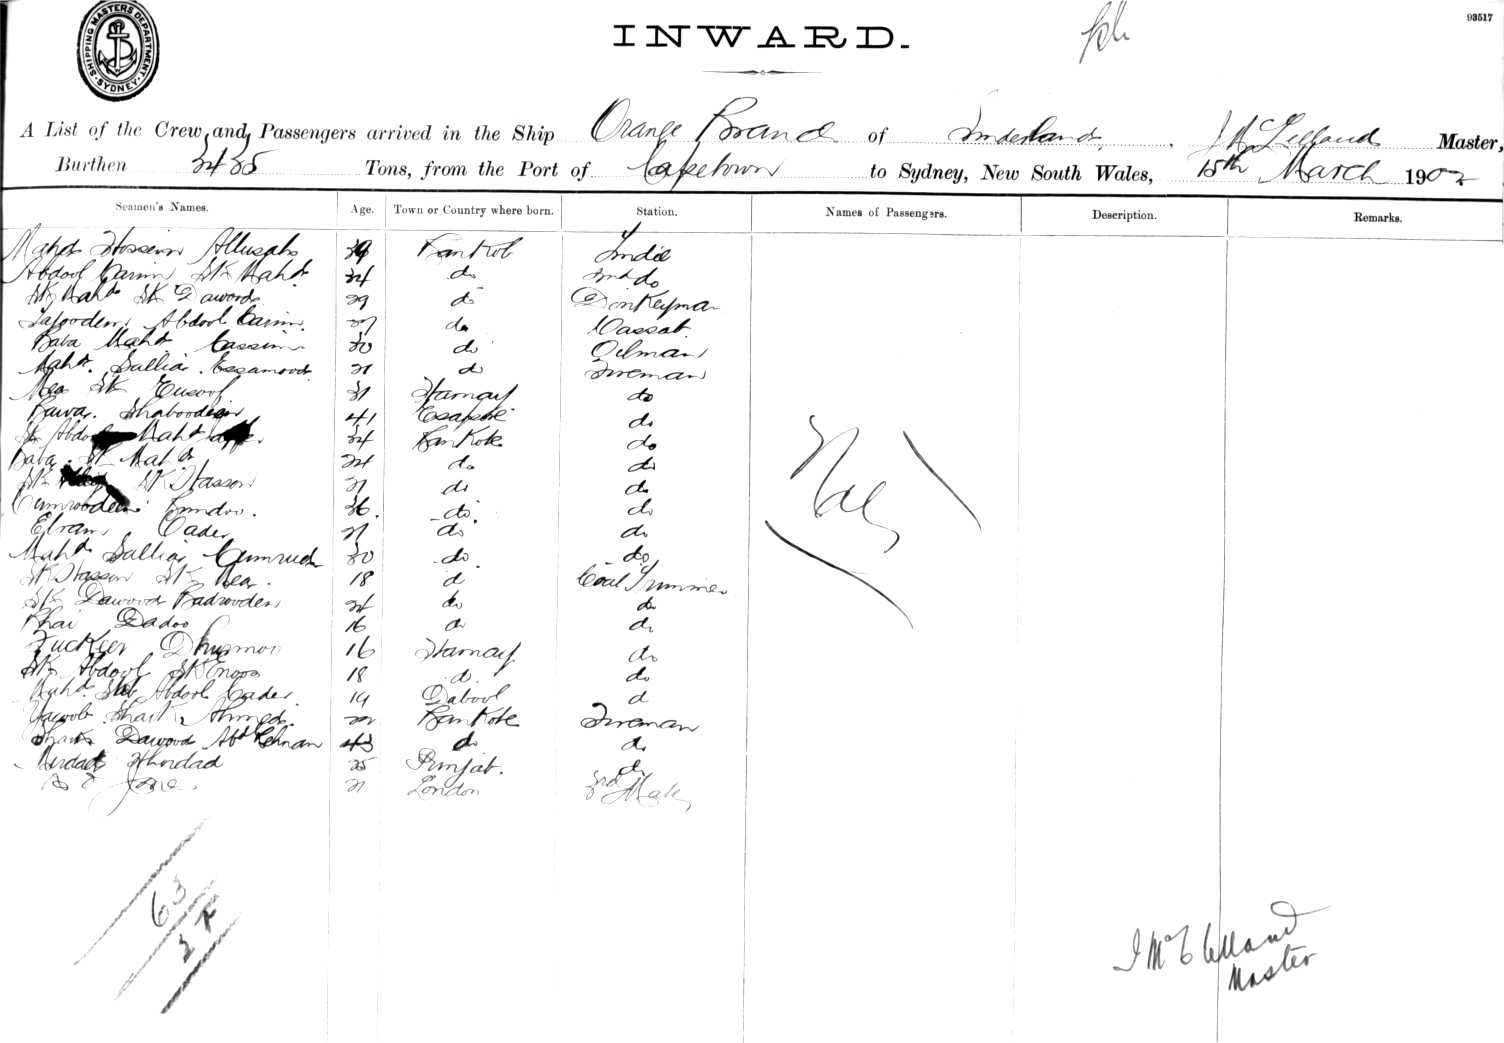 SHIPPING MASTERS DEPARTMENT SYDNEY
93517
INWARD.
A List of the Crew and Passengers arrived in the Ship Orange Branch of Sunderland, J McLelland Master,
Burthen 3435 Tons, from the Port of Capetown to Sydney, New South Wales, 15th March 1902
Seamen's Names. Age. Town or Country where born. Station. Names of Passengers. Description. Remarks.
Mahd Hossein 39 Bankot
Abdool Carim SK Mahd 34 do 2nd do
SK Mahd SK Dawood 29 do Donkeyman
Abdool Carim 27 do Cassab
Baba Mahd Cassim 30 do Oilman
Mahd. Sallia Essamood 21 do Fireman
SK Eusoof 31 Harnay do
Bawa Shaboodeen 41 do
SK Abdool Mahd 34 Bankote do
Baba SK Mahd 24 do do
SK SK Hasson 21 do do
36. do do
Cader 21 do do
Mahd Sallia Cumrudn 30 do do
SK Hassan SK 18 d Coal Trimmer
SK Dawood Badrooden 24 do do
Bhai Dadoo 16 do do
Fuckeer 16 Harnay do
SK Abdool SK Enoos 18 d. do
Mahd. Abdool Cader 19 Dabool d
Yacoob Shaik Ahmed. 22 Bankote Fireman
Shaik Dawood Abd Rehman 43 do do
35 Punjab. do
21 London 3rd Mate
Nil
63
J McClelland
Master